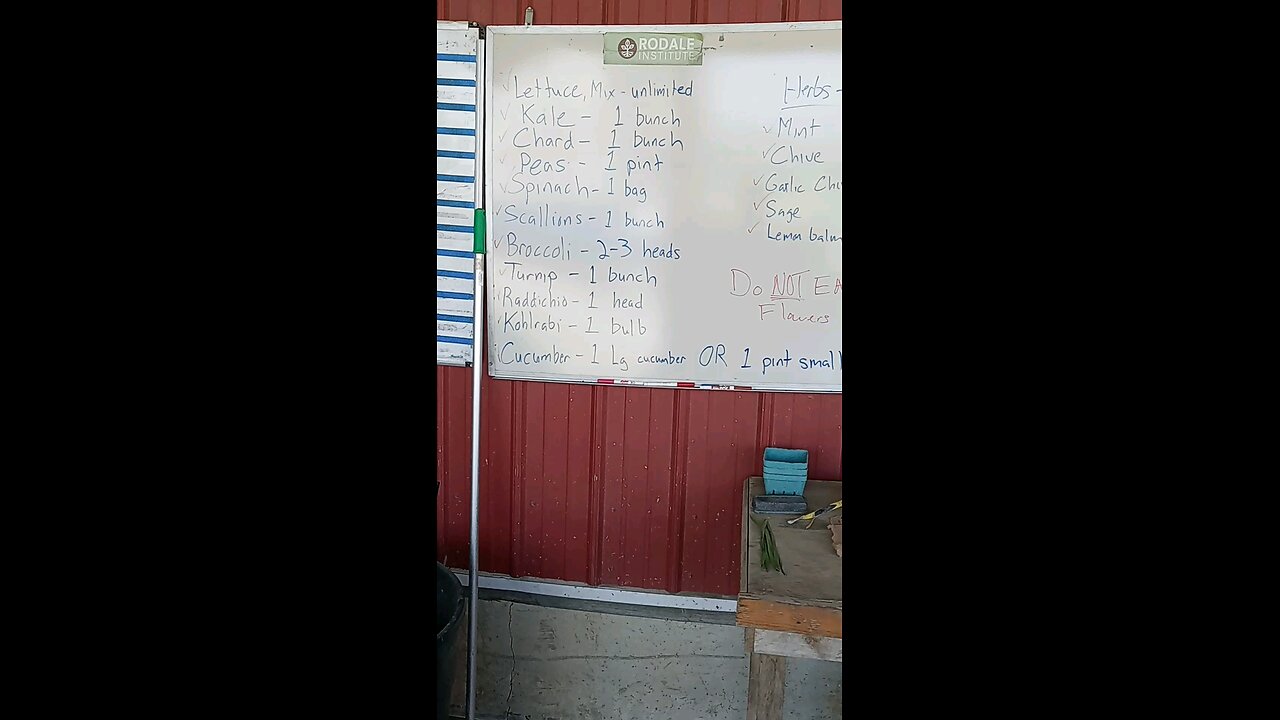 RODALE
INSTITUTE
Lettuce, Mix - unlimited
Kale - 1 bunch
Chard - 1 bunch
Peas - 1 pint
Spinach - 1 bag
Scallions - 1 bunch
Broccoli - 2-3 heads
Turnip - 1 bunch
Radichio - 1 head
Kohlrabi - 1 bulb
Cucumber - 1 lg. cucumber OR 1 pint small
Herbs -
Mint
Chive
Garlic Chi
Sage
Lemon balm
Do NOT EA
Flowers